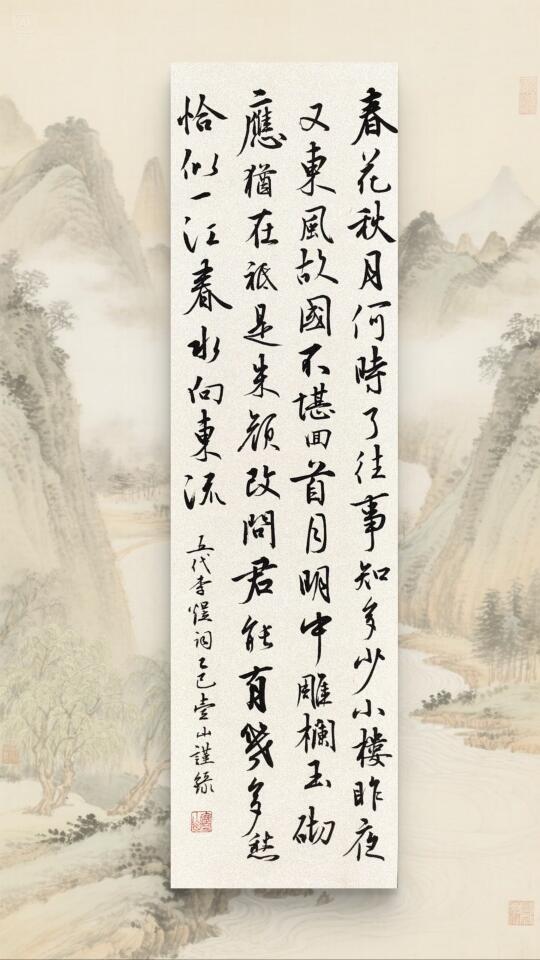 春花秋月何時了往事知多少小樓昨夜
又東風故國不堪回首月明中雕欄玉砌
應猶在祗是朱顏改問君能有幾多愁
恰似一江春水向東流
五代李煜詞乙巳壹山謹錄